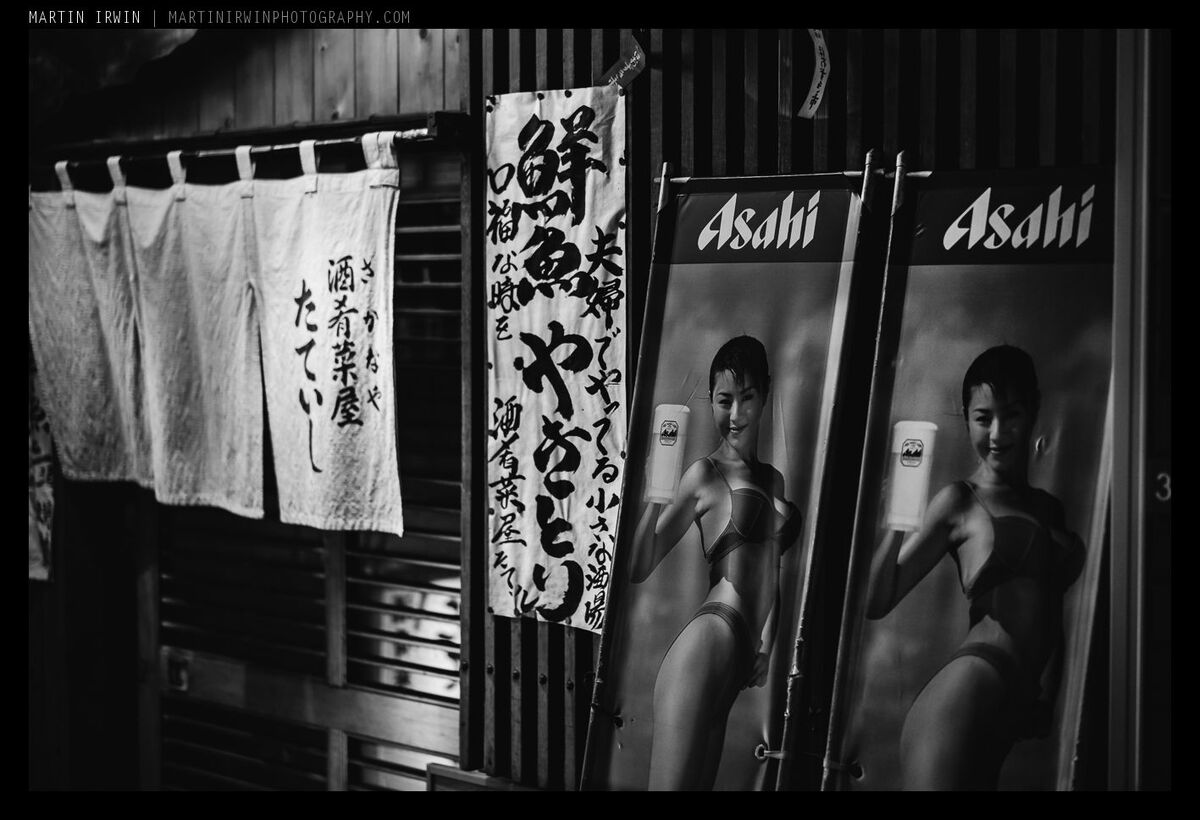 MARTIN IRWIN | MARTINIRWINPHOTOGRAPHY.COM
さかなや
酒肴菜屋
たていし
夫婦でやってる小さな酒場
鮮魚 やきとり
口福な時を 酒肴菜屋たて
Asahi
Asahi
3